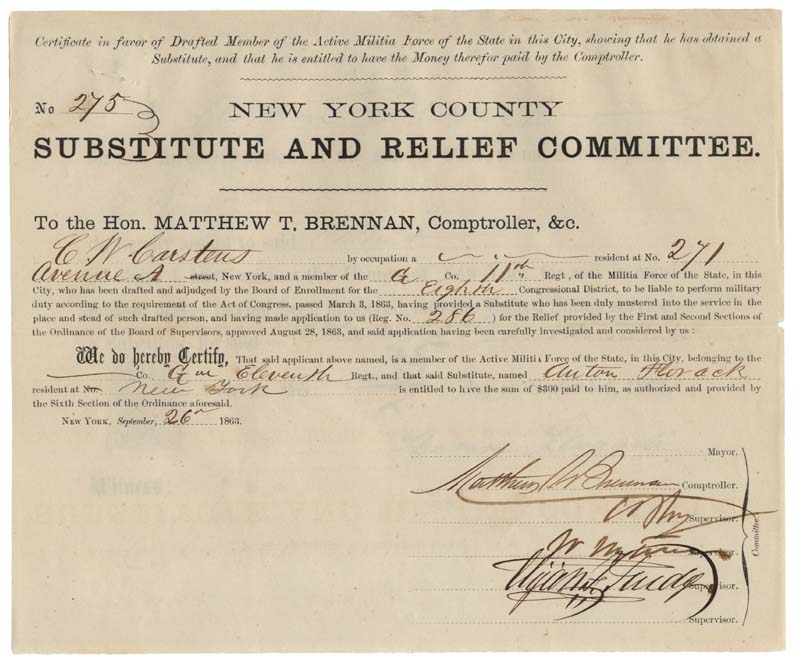 Certificate in favor of Drafted Member of the Active Militia Force of the State in this City, showing that he has obtained a
Substitute, and that he is entitled to have the Money therefor paid by the Comptroller.
No 275
NEW YORK COUNTY
SUBSTITUTE AND RELIEF COMMITTEE.
To the Hon. MATTHEW T. BRENNAN, Comptroller, &c.
C W Carstens by occupation a resident at No. 271
Avenue A street, New York, and a member of the G Co. 11th Regt, of the Militia Force of the State, in this
City, who has been drafted and adjudged by the Board of Enrollment for the Eighth Congressional District, to be liable to perform military
duty according to the requirement of the Act of Congress, passed March 3, 1863, having provided a Substitute who has been duly mustered into the service in the
place and stead of such drafted person, and having made application to us (Reg. No. 286) for the Relief provided by the First and Second Sections of
the Ordinance of the Board of Supervisors, approved August 28, 1863, and said application having been carefully investigated and considered by us:
We do hereby Certify, That said applicant above named, is a member of the Active Militia Force of the State, in this City, belonging to the
Co. G Eleventh Regt., and that said Substitute, named Anton Horack
resident at No. New York is entitled to have the sum of $300 paid to him, as authorized and provided by
the Sixth Section of the Ordinance aforesaid.
New York, September, 26 1863.
Mayor.
Matthew T. Brennan Comptroller.
Supervisor.
Supervisor.
Supervisor.
Supervisor.
Committee.